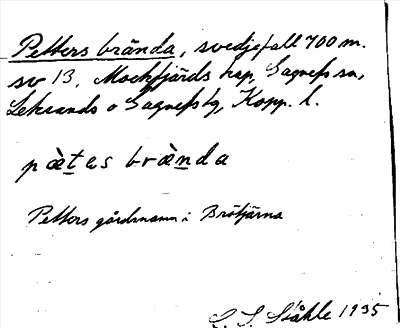 Petters brända, svedjefall 700 m.
sv 13, Mockfjärds kap, Gagnefs sn,
Leksands o Gagnefs tg, Kopp. l.
pæ̀tes bræ̀nda
Petters gårdsnamn i Brötjärna
C. I. Ståhle 1935